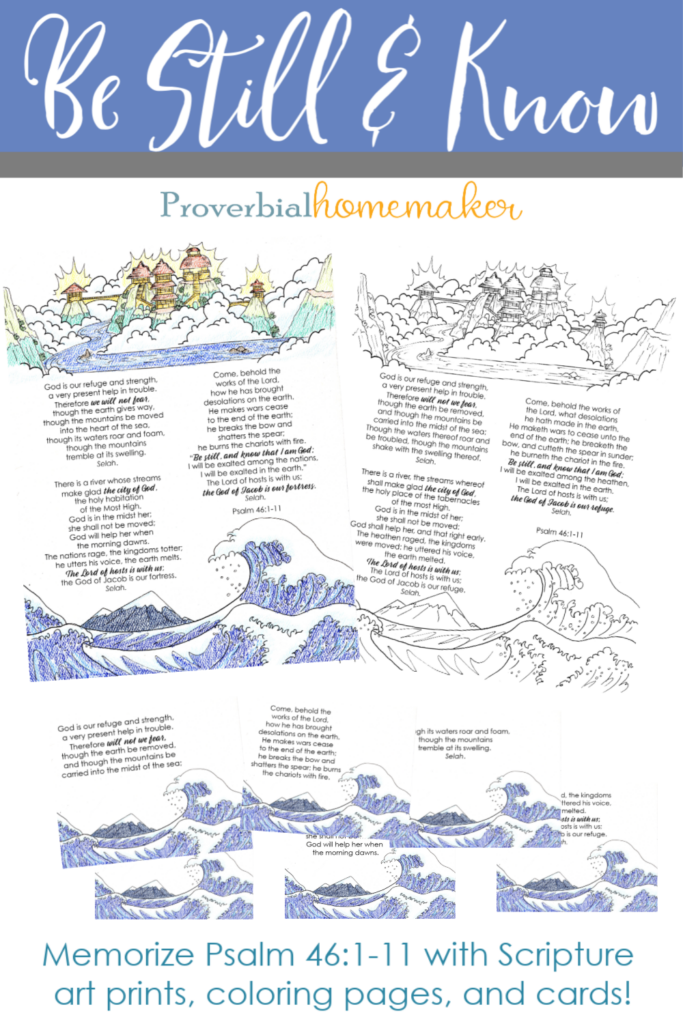 Be Still & Know
Proverbialhomemaker
God is our refuge and strength,
a very present help in trouble.
Therefore we will not fear,
though the earth gives way,
though the mountains be moved
into the heart of the sea,
though its waters roar and foam,
though the mountains
tremble at its swelling.
Selah.
There is a river whose streams
make glad the city of God,
the holy habitation
of the Most High.
God is in the midst her;
she shall not be moved;
God will help her when
the morning dawns.
The nations rage, the kingdoms totter;
he utters his voice, the earth melts.
The Lord of hosts is with us;
the God of Jacob is our fortress.
Selah.
Come, behold the
works of the Lord,
how he has brought
desolations on the earth.
He makes wars cease
to the end of the earth;
he breaks the bow and
shatters the spear;
he burns the chariots with fire.
“Be still, and know that I am God;
I will be exalted among the nations,
I will be exalted in the earth.”
The Lord of hosts is with us;
the God of Jacob is our fortress.
Selah.
Psalm 46:1-11
God is our refuge and strength,
a very present help in trouble.
Therefore will not we fear,
though the earth be removed,
and though the mountains be
carried into the midst of the sea;
Though the waters thereof roar and
be troubled, though the mountains
shake with the swelling thereof.
Selah.
There is a river, the streams whereof
shall make glad the city of God,
the holy place of the tabernacles
of the most High.
God is in the midst of her;
she shall not be moved:
God shall help her, and that right early.
The heathen raged, the kingdoms
were moved: he uttered his voice,
the earth melted.
The Lord of hosts is with us;
the God of Jacob is our refuge.
Selah.
Come, behold the works of
the Lord, what desolations
he hath made in the earth.
He maketh wars to cease unto the
end of the earth; he breaketh the
bow, and cutteth the spear in sunder;
he burneth the chariot in the fire.
Be still, and know that I am God:
I will be exalted among the heathen,
I will be exalted in the earth.
The Lord of hosts is with us;
the God of Jacob is our refuge.
Selah.
Psalm 46:1-11
God is our refuge and strength,
a very present help in trouble.
Therefore will not we fear,
though the earth be removed,
and though the mountains be
carried into the midst of the sea;
Come, behold the
works of the Lord,
how he has brought
desolations on the earth.
He makes wars cease
to the end of the earth;
he breaks the bow and
shatters the spear; he burns
the chariots with fire.
gh its waters roar and foam,
though the mountains
tremble at its swelling.
Selah.
she shall not be
God will help her when
the morning dawns.
d, the kingdoms
ttered his voice,
melted.
sts is with us;
osts is with us;
b is our refuge.
h.
Memorize Psalm 46:1-11 with Scripture
art prints, coloring pages, and cards!